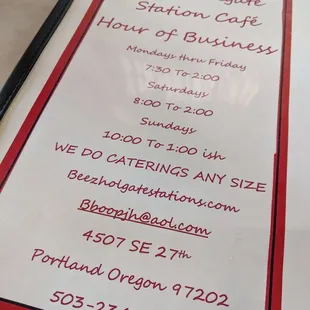 Station Café
Hour of Business
Mondays thru Friday
7:30 To 2:00
Saturdays
8:00 To 2:00
Sundays
10:00 To 1:00 ish
WE DO CATERINGS ANY SIZE
Beezholgatestations.com
Bboopjh@aol.com
4507 SE 27th
Portland Oregon 97202